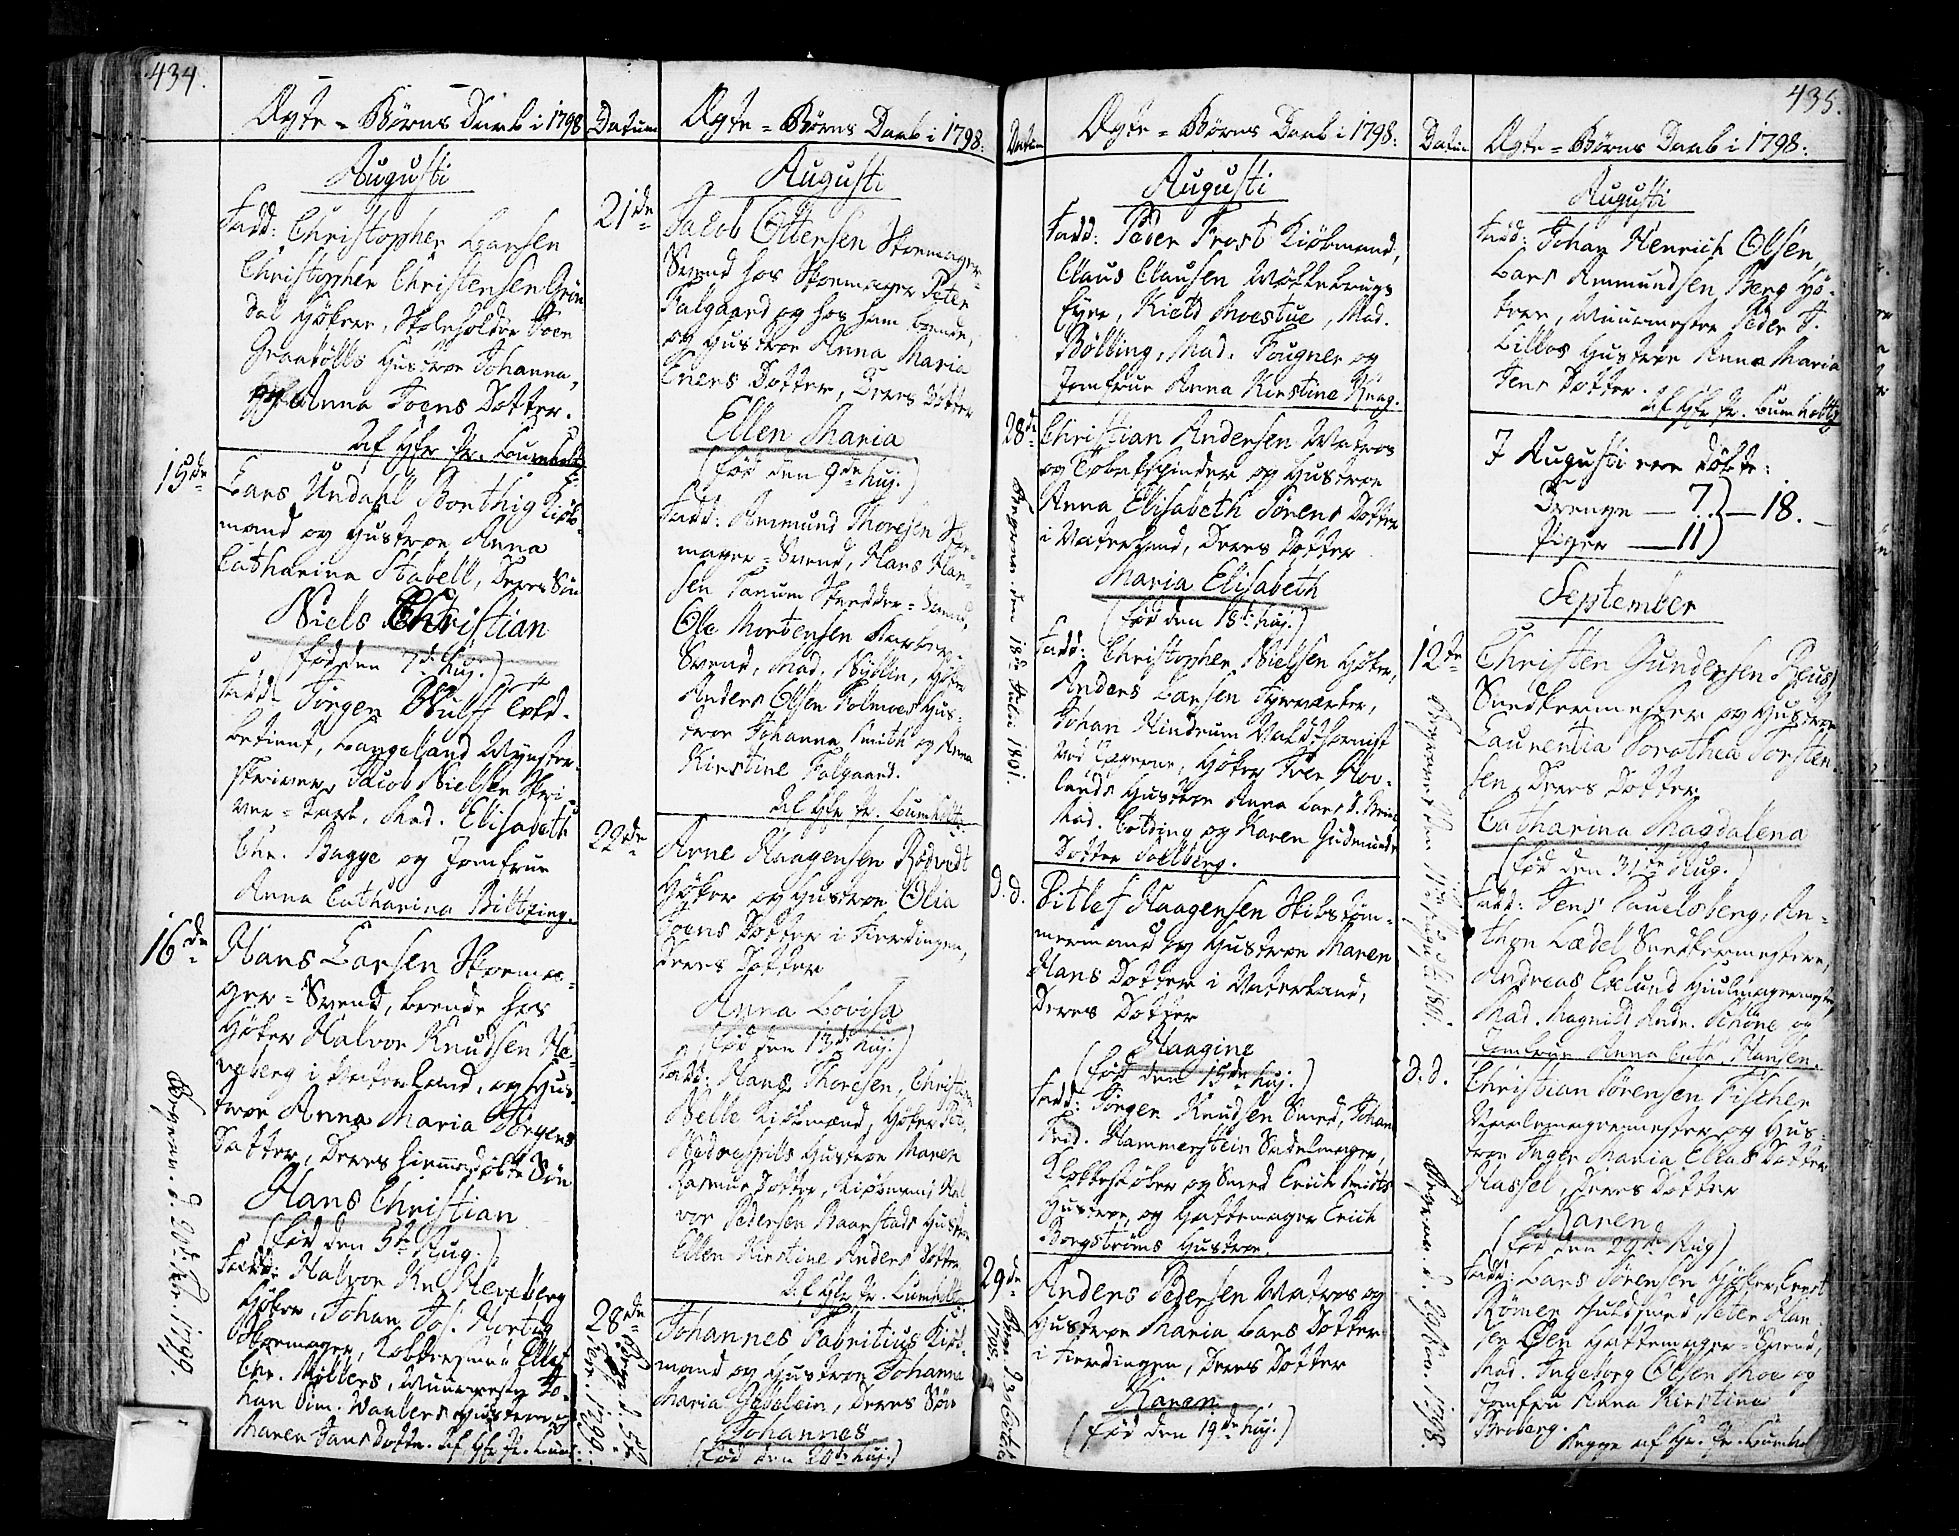 434.
Ægte = Børns Daab i 1798
Augusti
Fadd: Christopher Larsen
Christopher Christensen Grön
dal Høker, Skoleholder Joen
Graabölls Hustroe Johanna,
og Anna Joens Dotter.
af Hr. Pr. Lumholtz
15de Lars Undahl Borthig Kiöb-
mand og Hustroe Anna
Catharina Stabell, Deres Sön
Niels Christian
(fød den 7de huj.)
Fadd. Jørgen Wulff Told-
betient,
skriver, Jacob Nielsen Skri-
ver = Karl, Mad. Elisabeth
Chr. Bagge og Jomfrue
Anna Catharina Biltzing.
16de Hans Larsen Skoema-
ger = Svend, boende hos
Høker Halvor Knudsen He-
i Vaterland, og Hus-
troe Anna Maria Jörgens
Datter, Deres hiemmedöbte Sön
Hans Christian
(fød den 5te Aug.)
Fadd: Halvor Kn.
Høker, Johan Jos. Hortug
Skoemager,
Chr. Möllers, Muurmester Jo-
han Sim. Waalers Hustroe og
Maren Jans Dotter. af Hr. Pr. Lumh.
Begraven d. 20de 1799.
Datum
Ægte = Børns Daab i 1798.
Augusti
21de Jacob Ottersen Skoemager-
Svend hos Skoemager Peter
Falgaard og hos ham boende,
og Hustroe Anna Maria
Eners Dotter, Deres Dotter
Ellen Maria
(fød den 9de huj.)
Fadd: Ammund Thoresen Skoe-
mager = Svend, Hans Han-
sen Farum Skredder = Svend,
Ole Mortensen
Svend, Mad. Nydlin, Høker
Anders Olsen Holmoes Hus-
troe Johanna Smith og Anna
Kirstine Falgaard.
af Hr. Pr. Lumholtz
22de Arne Haagensen Rödvedt
Høker og Hustroe Olia
Joens Dotter i Fierdingen,
Deres Dotter
Anna Lovisa
(fød den 13de huj.)
Fadd: Hans Thoresen, Christian
Nelle Kiöbmænd, Høker
Hustroe Maren
Rasmus Dotter, Kiöbmand Hal-
vor Pedersen Haarstads Hustroe
Ellen Kirstine Anders Dotter
af Hr. Pr. Lumholtz
28de Johannes Fabritius Kiöb-
mand og Hustroe Johanne
Maria Gebelein, Deres Sön
Johannes
(fød den 24de huj.)
Begr. d. 5te 1799.
Datum
Ægte = Børns Daab i 1798.
Augusti
Fadd: Peder Frost Kiöbmand,
Claus Clausen
Eyer, Kield Moestue, Mad.
Bölling, Mad. Fougner og
Jomfrue Anna Kirstine Krag.
28de Christian Andersen Matros
og Tobakspinder og Hustroe
Anna Elisabeth Sörens Dotter
i Vaterland, Deres Dotter
Maria Elisabeth
(fød den 18de huj.)
Fadd: Christopher Nielsen Høker,
Anders Larsen Fyrværker,
Johan Hindrum Waldthornist
ved Jægerne, Høker Iver Hov-
lands Hustroe Anna Lars D.
Mad. Colding og Karen Gudmunds
Dotter Soelberg.
Begraven den 18de Julii 1801.
d. d. Ditlef Haagensen Skibstöm-
mermand og Hustroe Maren
Hans Dotter i Vaterland,
Deres Dotter
Haagine
(fød den 15de huj.)
Fadd: Jörgen Knudsen Smed, Johan
Frid. Hammerstein Sadelmager,
Klokkestöber og Smed Erich Smidts
Hustroe, og Hattemager Erich
Borgströms Hustroe.
29de Anders Pedersen Matros og
Hustroe Maria Lars Dotter
i Fierdingen, Deres Dotter
Karen
(fød den 19de huj.)
Begr. d. 30 Octob. 1798.
435.
Datum
Ægte = Børns Daab i 1798.
Augusti
Fadd: Johan Henrich Olsen,
Lars Ammundsen Berg Hö-
kere, Muurmester Peder J.
Lilloes Hustroe Anna Maria
Jens Dotter.
af Hr. Pr. Lumholtz
I Augusti ere döbte:
Drenge — 7.
Piger — 11. } — 18. —
September
12te Christen Gundersen
Snedkermester og Hustroe
Laurentia Dorothea Torsten-
sen, Deres Dotter
Catharina Magdalena
(fød den 31te Aug.)
Fadd: Jens Pauelsberg, An-
thon Lædel Snedkermestere,
Andreas Eklund Hiulmagermester,
Mad. Magnild Andr. Schöne og
Jomfrue Anna Cath. Hansen.
Begravet den 11te Augusti 1801.
d. d. Christian Sörensen Fischer
Hus-
troe Inger Maria Elias Dotter
Hassel, Deres Dotter
Karen
(fød den 29de Aug)
Fadd: Lars Sörensen Höker, Ernst
Römer Guldsmed, Peter Han-
sen Öen Hattemager = Svend,
Mad. Ingeborg Olsen Moe og
Jomfru Anna Kirstine
Broberg.
Begge af Hr. Pr. Lumholtz
Begraven d. 1798.